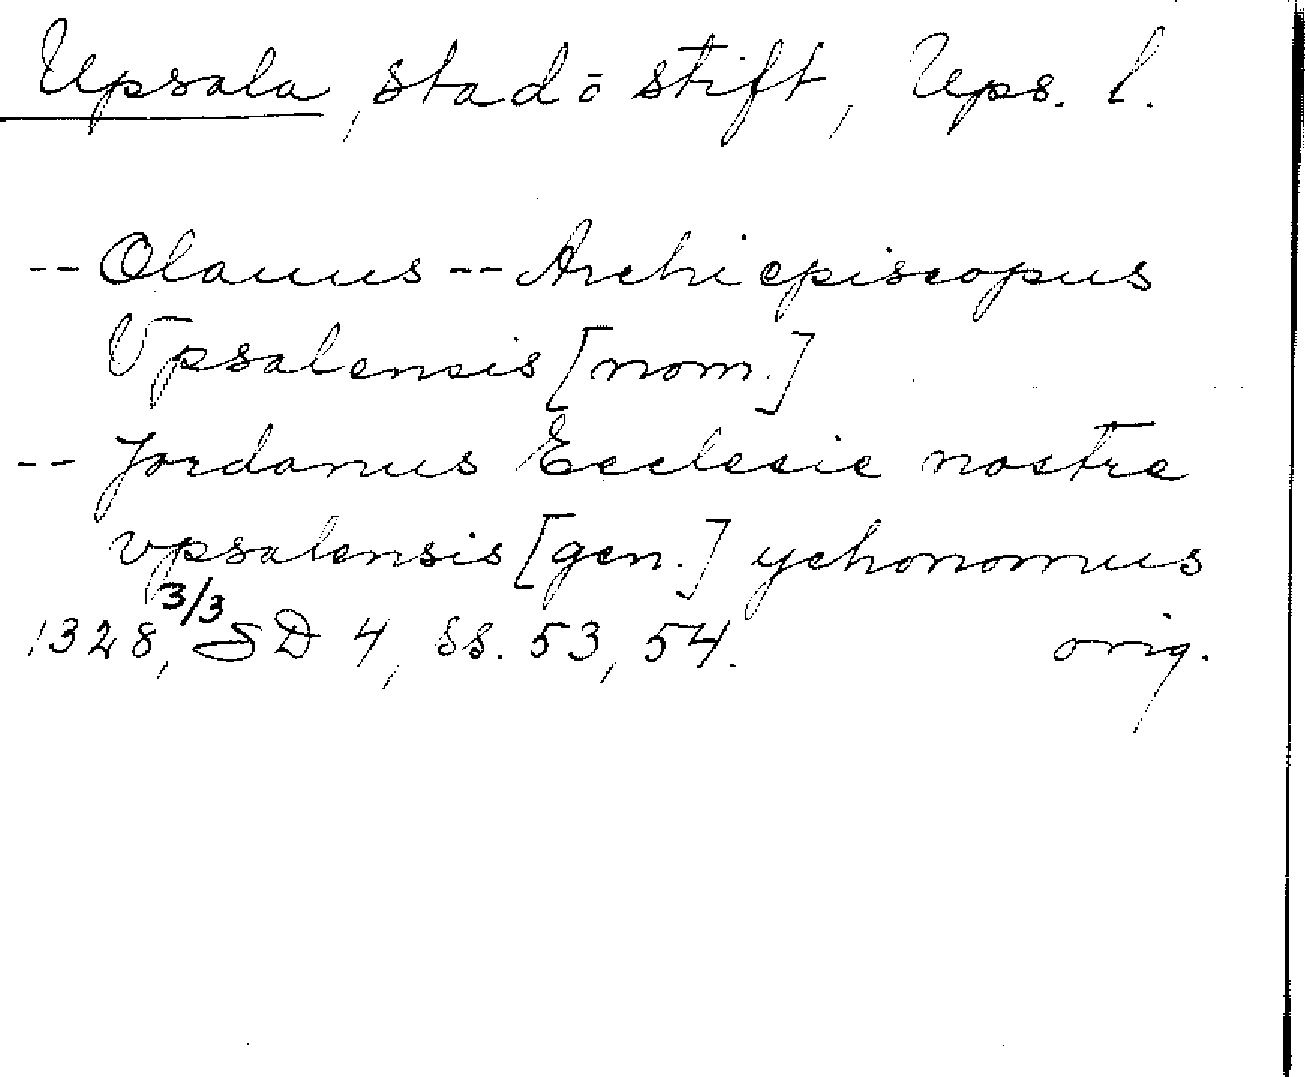 Upsala, stad o stift, Ups. l.
-- Olauus -- Archiepiscopus
Vpsalensis [nom.]
-- Jordanus Ecclesie nostre
vpsalensis [gen.] ychonomus
1328, 3/3 SD 4, ss. 53, 54. orig.